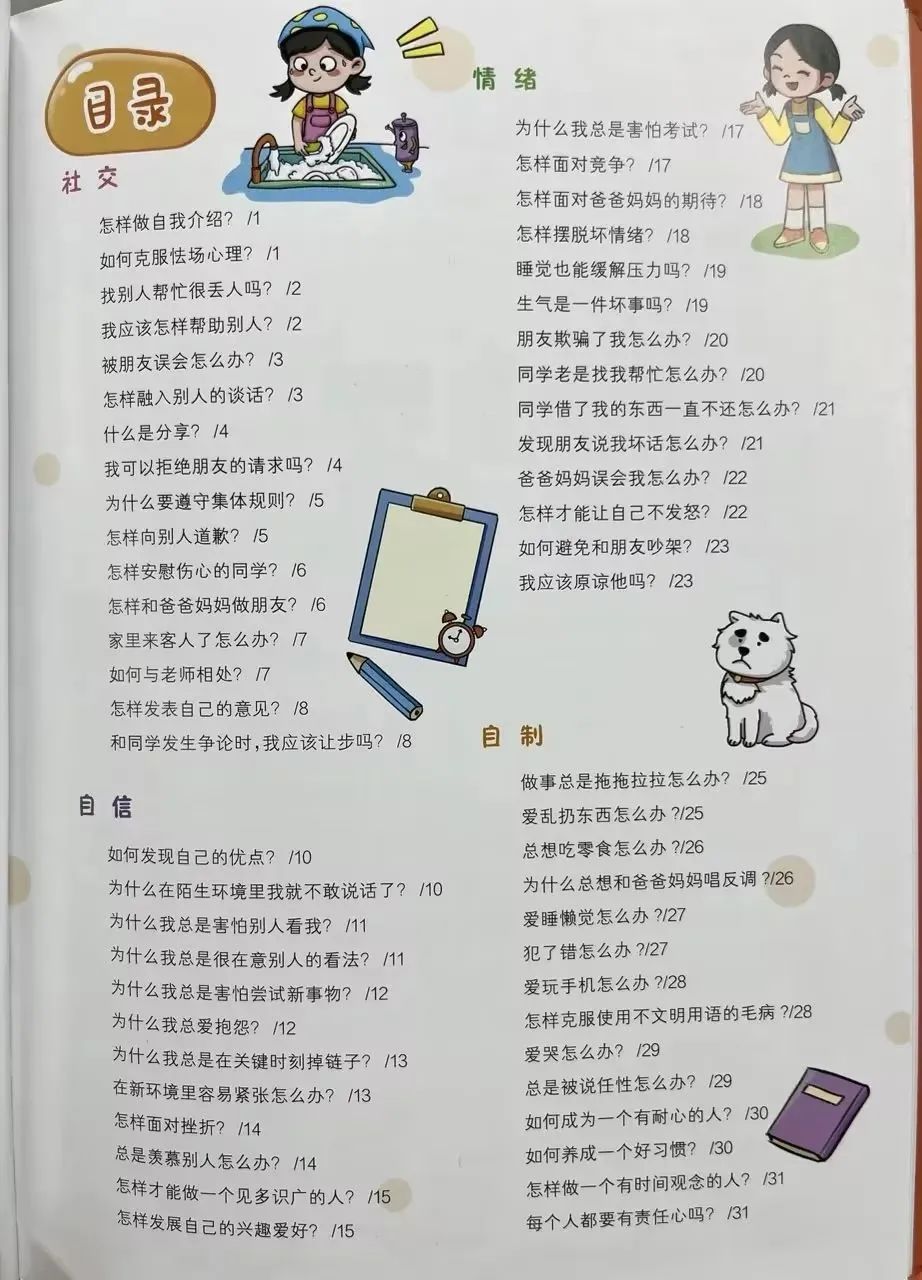 目录
社交
怎样做自我介绍？ /1
如何克服怯场心理？ /1
找别人帮忙很丢人吗？ /2
我应该怎样帮助别人？ /2
被朋友误会怎么办？ /3
怎样融入别人的谈话？ /3
什么是分享？ /4
我可以拒绝朋友的请求吗？ /4
为什么要遵守集体规则？ /5
怎样向别人道歉？ /5
怎样安慰伤心的同学？ /6
怎样和爸爸妈妈做朋友？ /6
家里来客人了怎么办？ /7
如何与老师相处？ /7
怎样发表自己的意见？ /8
和同学发生争论时，我应该让步吗？ /8
自信
如何发现自己的优点？ /10
为什么在陌生环境里我就不敢说话了？ /10
为什么我总是害怕别人看我？ /11
为什么我总是很在意别人的看法？ /11
为什么我总是害怕尝试新事物？ /12
为什么我总爱抱怨？ /12
为什么我总是在关键时刻掉链子？ /13
在新环境里容易紧张怎么办？ /13
怎样面对挫折？ /14
总是羡慕别人怎么办？ /14
怎样才能做一个见多识广的人？ /15
怎样发展自己的兴趣爱好？ /15
情绪
为什么我总是害怕考试？ /17
怎样面对竞争？ /17
怎样面对爸爸妈妈的期待？ /18
怎样摆脱坏情绪？ /18
睡觉也能缓解压力吗？ /19
生气是一件坏事吗？ /19
朋友欺骗了我怎么办？ /20
同学老是找我帮忙怎么办？ /20
同学借了我的东西一直不还怎么办？ /21
发现朋友说我坏话怎么办？ /21
爸爸妈妈误会我怎么办？ /22
怎样才能让自己不发怒？ /22
如何避免和朋友吵架？ /23
我应该原谅他吗？ /23
自制
做事总是拖拖拉拉怎么办？ /25
爱乱扔东西怎么办？/25
总想吃零食怎么办？/26
为什么总想和爸爸妈妈唱反调？/26
爱睡懒觉怎么办？/27
犯了错怎么办？/27
爱玩手机怎么办？/28
怎样克服使用不文明用语的毛病？/28
爱哭怎么办？ /29
总是被说任性怎么办？ /29
如何成为一个有耐心的人？ /30
如何养成一个好习惯？ /30
怎样做一个有时间观念的人？ /31
每个人都要有责任心吗？ /31